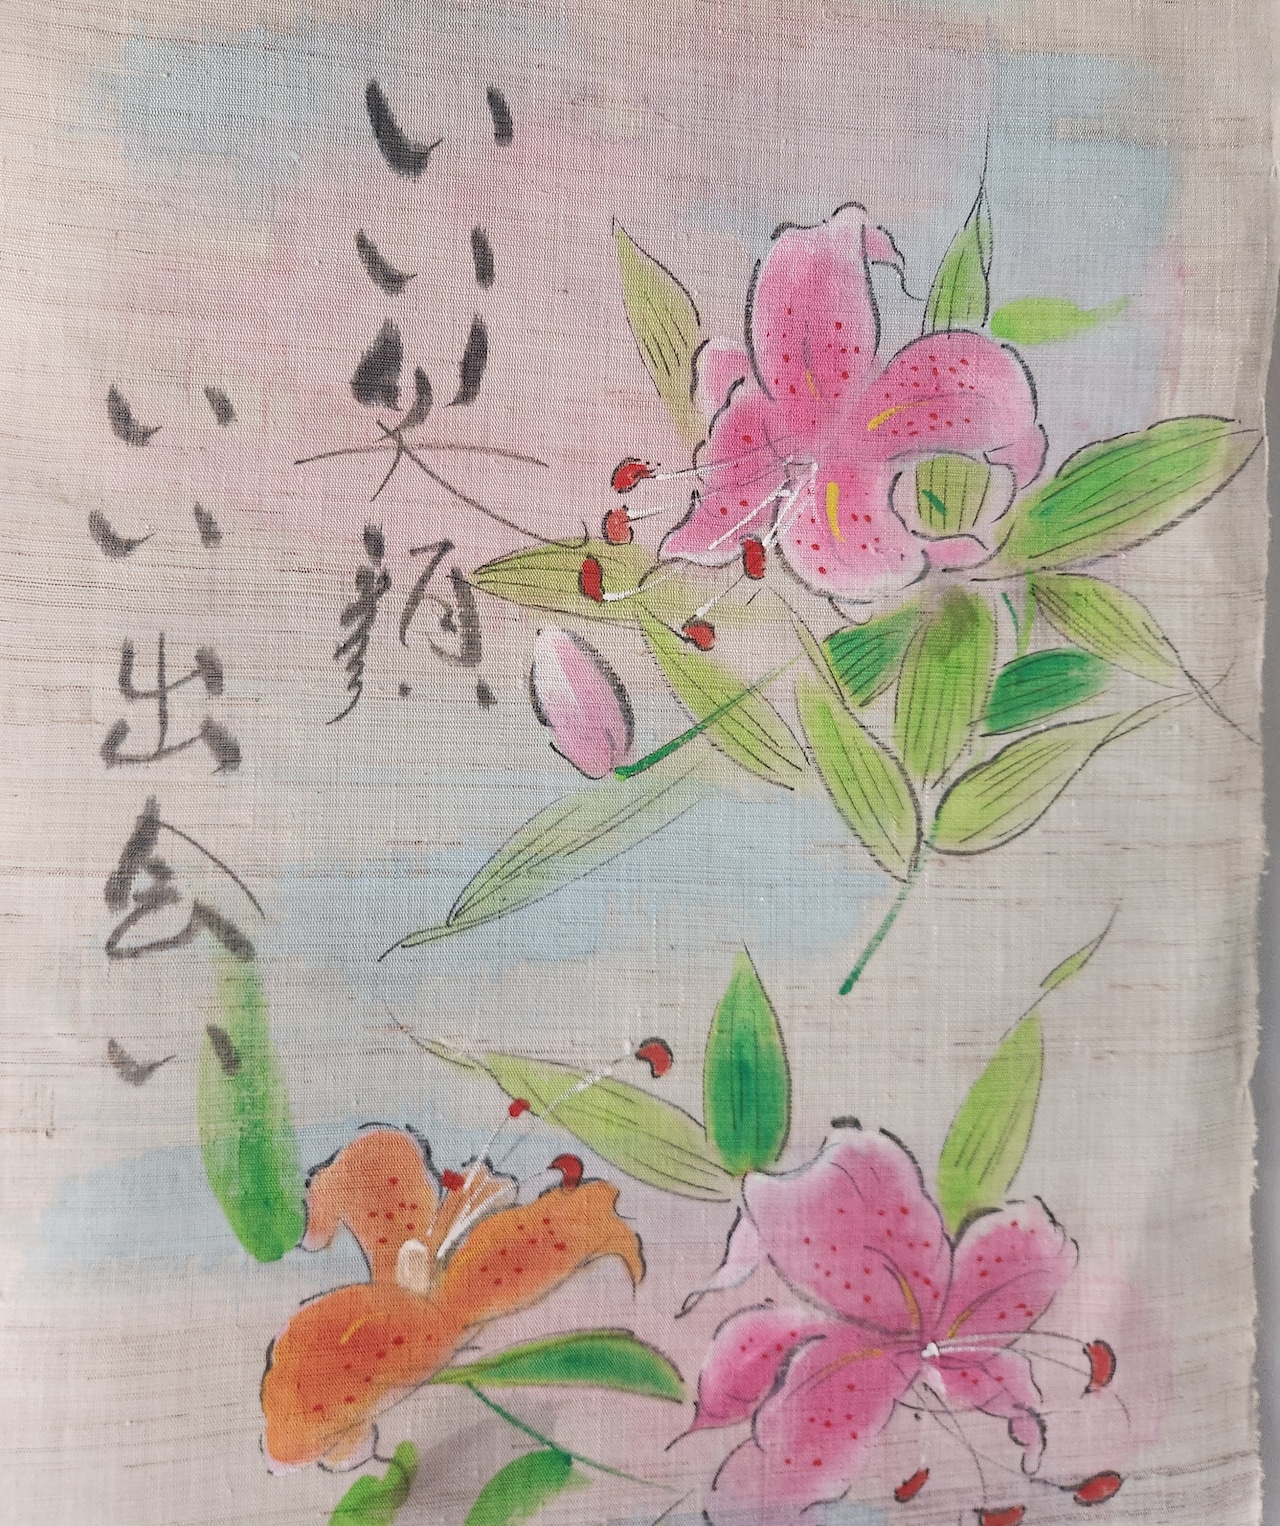 いい笑顔
いい出会い